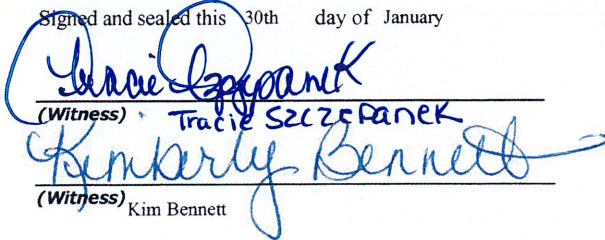 Signed and sealed this 30th day of January
Tracie Szczepanek
(Witness) Tracie Szczepanek
Kimberly Bennett
(Witness) Kim Bennett